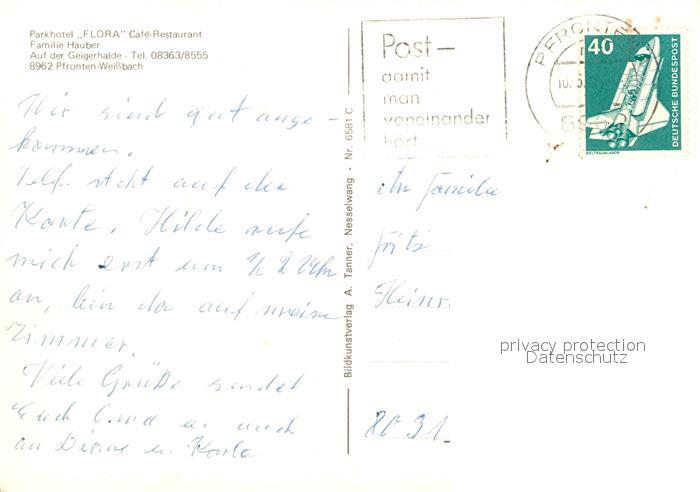 Parkhotel „FLORA" Café-Restaurant
Familie Hauber
Auf der Geigerhalde - Tel. 08363/8555
8962 Pfronten-Weißbach
Wir sind gut ange-
kommen.
Telf. steht auf der
Karte. Hilde rufe
mich erst um 1/2 2 Uhr
an, bin da auf meine
Zimmer.
Viele Grüße sendet
Euch u. auch
an Diane u. Karla
Bildkunstverlag A. Tanner, Nesselwang - Nr. 6581 C
Post-
damit
man
voneinander
hört
PFRONTEN
40
DEUTSCHE BUNDESPOST
WELTRAUMLABOR
An Familie
Fritz
Heinr.
8031
privacy protection
Datenschutz